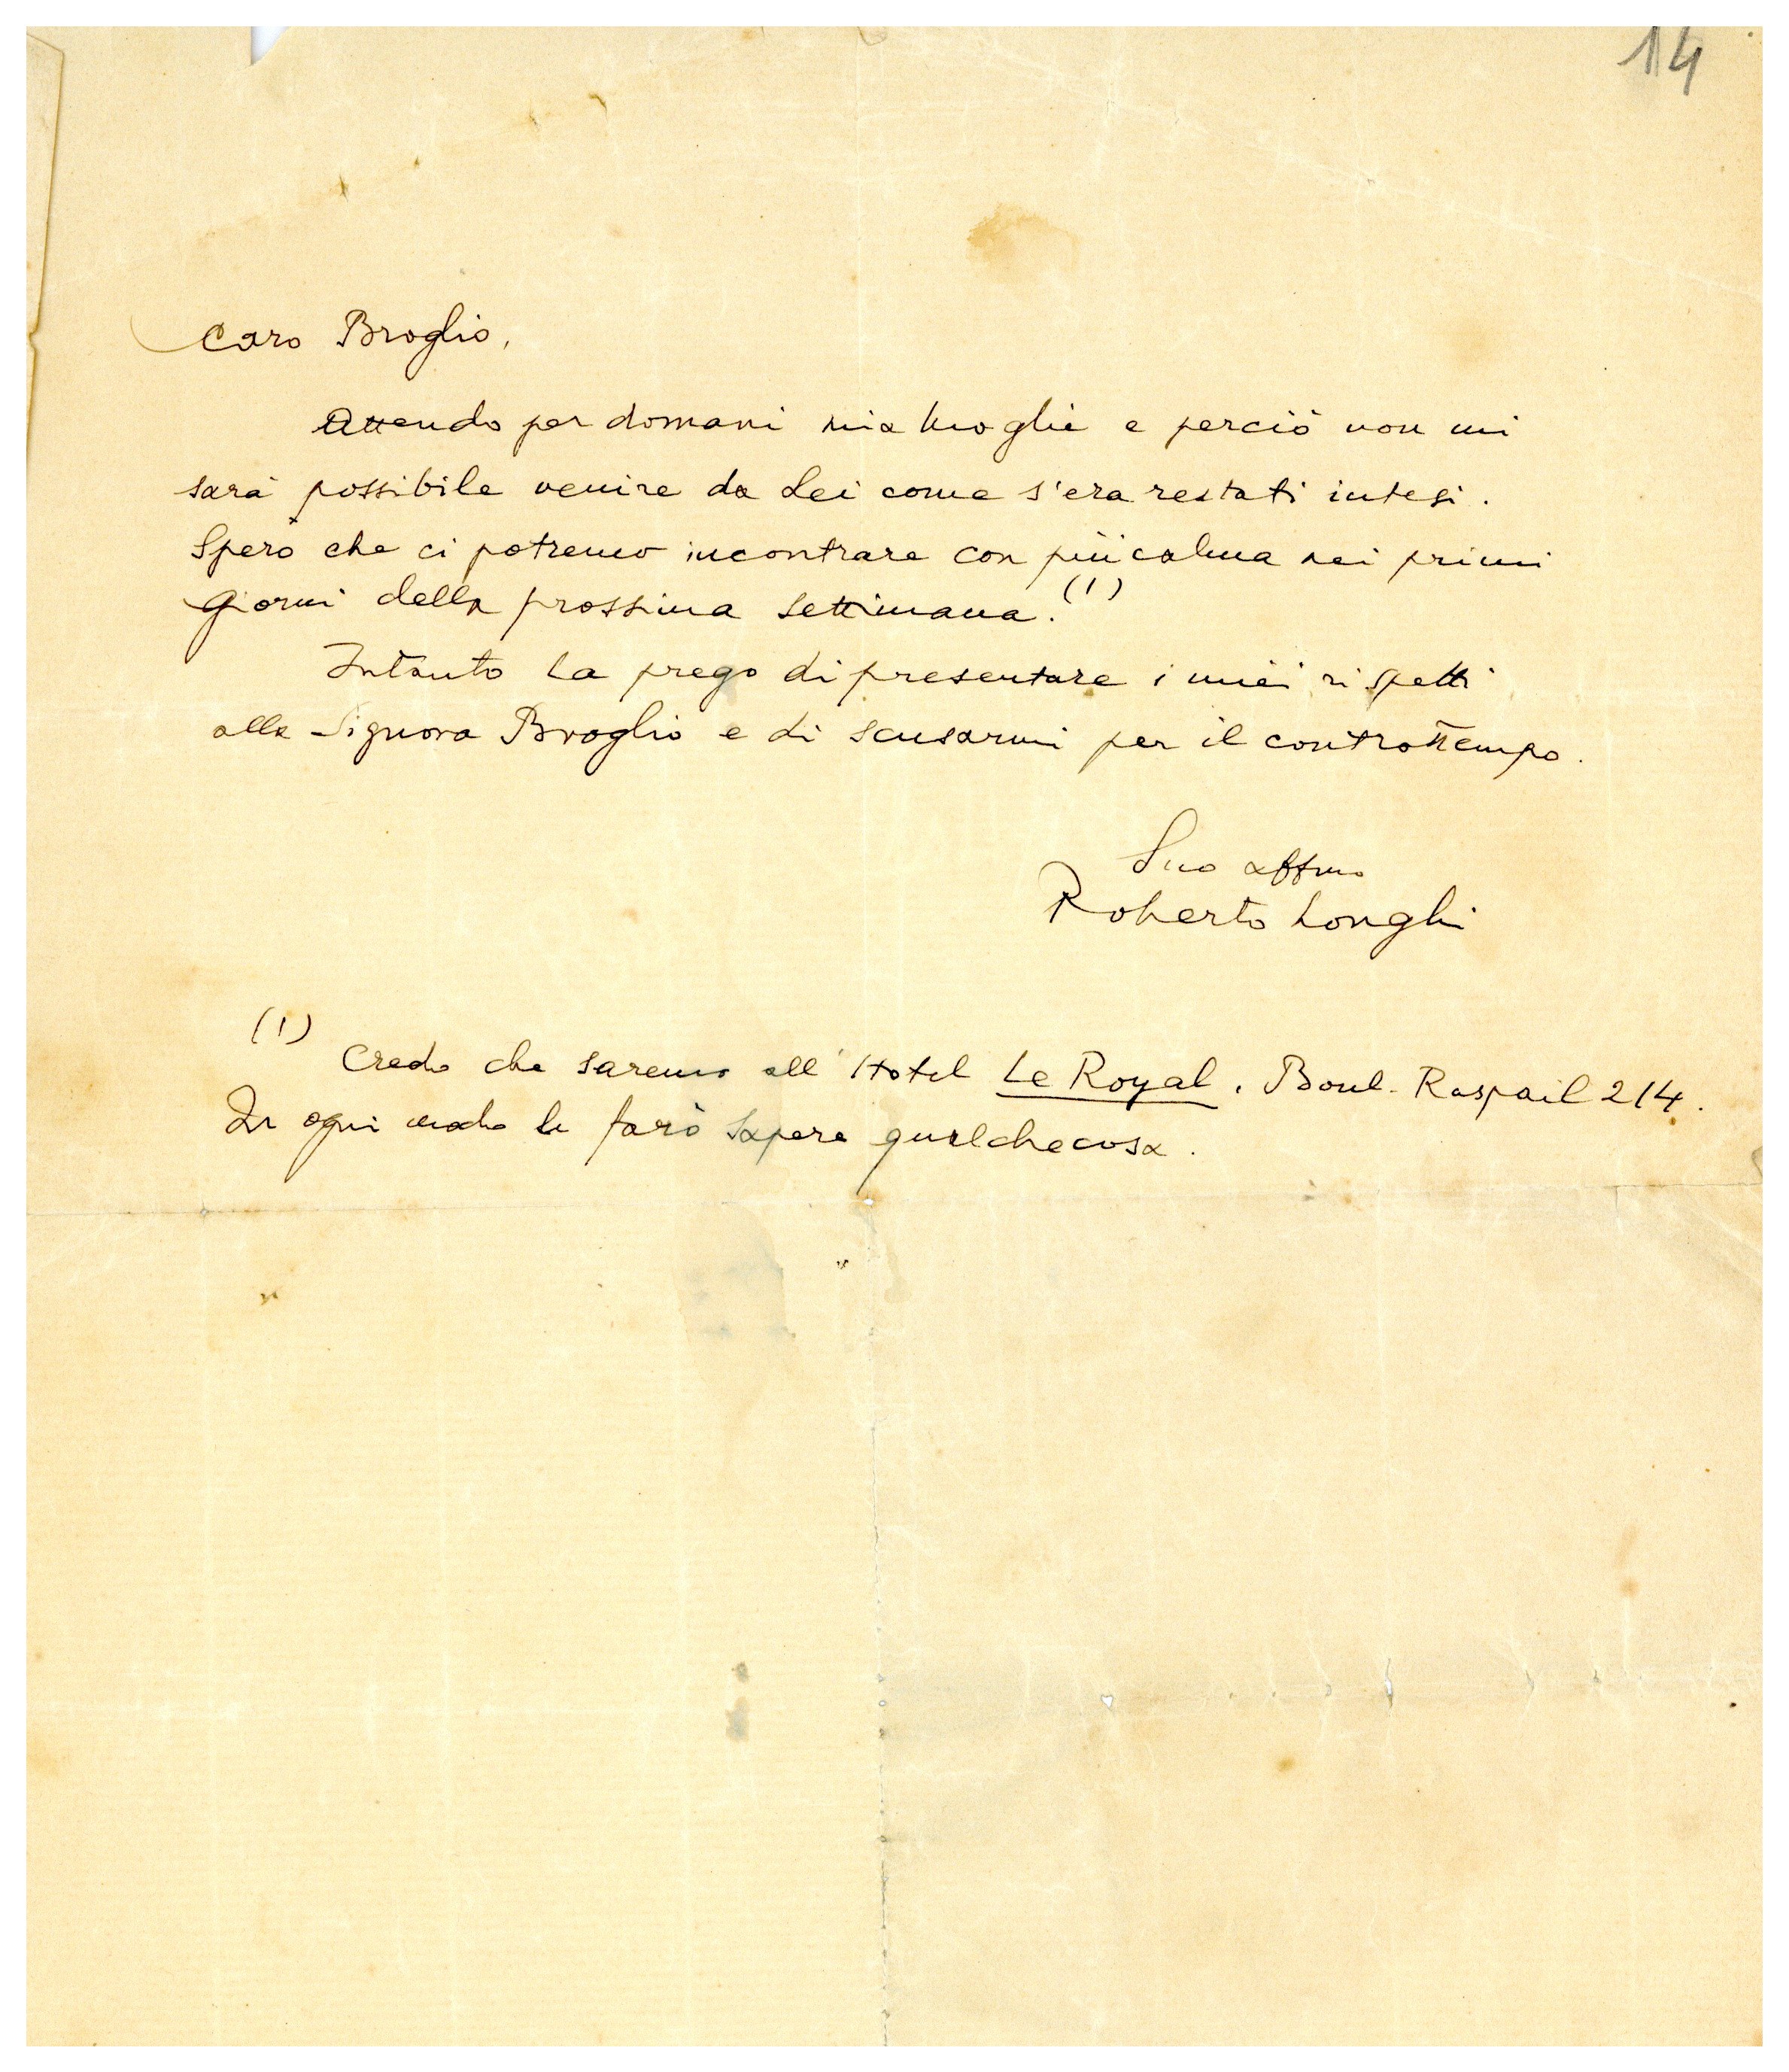 14
Caro Broglio,
Attendo per domani mia moglie e perciò non mi
sarà possibile venire da Lei come s'era restati intesi.
Spero che ci potremo incontrare con più calma nei primi
giorni della prossima settimana.(1)
Intanto La prego di presentare i miei rispetti
alla Signora Broglio e di scusarmi per il contrattempo.
Suo affmo
Roberto Longhi
(1)
Credo che saremo all'Hotel Le Royal. Boul. Raspail 214.
In ogni modo le farò sapere qualchecosa.